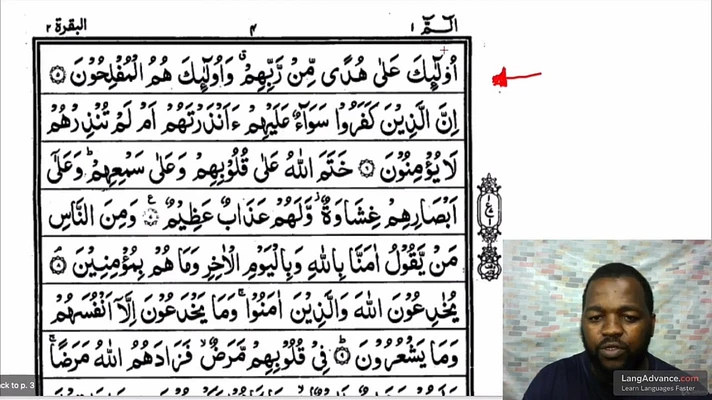 الٓمّٓ ١
٤
البقرة ٢
اُولٰٓئِكَ عَلٰى هُدًى مِّنْ رَّبِّهِمْ ۗ وَاُولٰٓئِكَ هُمُ الْمُفْلِحُوْنَ ۝٥
اِنَّ الَّذِيْنَ كَفَرُوْا سَوَآءٌ عَلَيْهِمْ ءَاَنْذَرْتَهُمْ اَمْ لَمْ تُنْذِرْهُمْ
لَا يُؤْمِنُوْنَ ۝٦ خَتَمَ اللّٰهُ عَلٰى قُلُوْبِهِمْ وَعَلٰى سَمْعِهِمْ ؕ وَعَلٰٓى
اَبْصَارِهِمْ غِشَاوَةٌ ۫ وَّلَهُمْ عَذَابٌ عَظِيْمٌ ۝٧ وَمِنَ النَّاسِ
مَنْ يَّقُوْلُ اٰمَنَّا بِاللّٰهِ وَبِالْيَوْمِ الْاٰخِرِ وَمَا هُمْ بِمُؤْمِنِيْنَ ۝٨
يُخٰدِعُوْنَ اللّٰهَ وَالَّذِيْنَ اٰمَنُوْا ۚ وَمَا يَخْدَعُوْنَ اِلَّآ اَنْفُسَهُمْ
وَمَا يَشْعُرُوْنَ ۝٩ فِيْ قُلُوْبِهِمْ مَّرَضٌ ۙ فَزَادَهُمُ اللّٰهُ مَرَضًا ۚ
ck to p. 3
LangAdvance.com
Learn Languages Faster